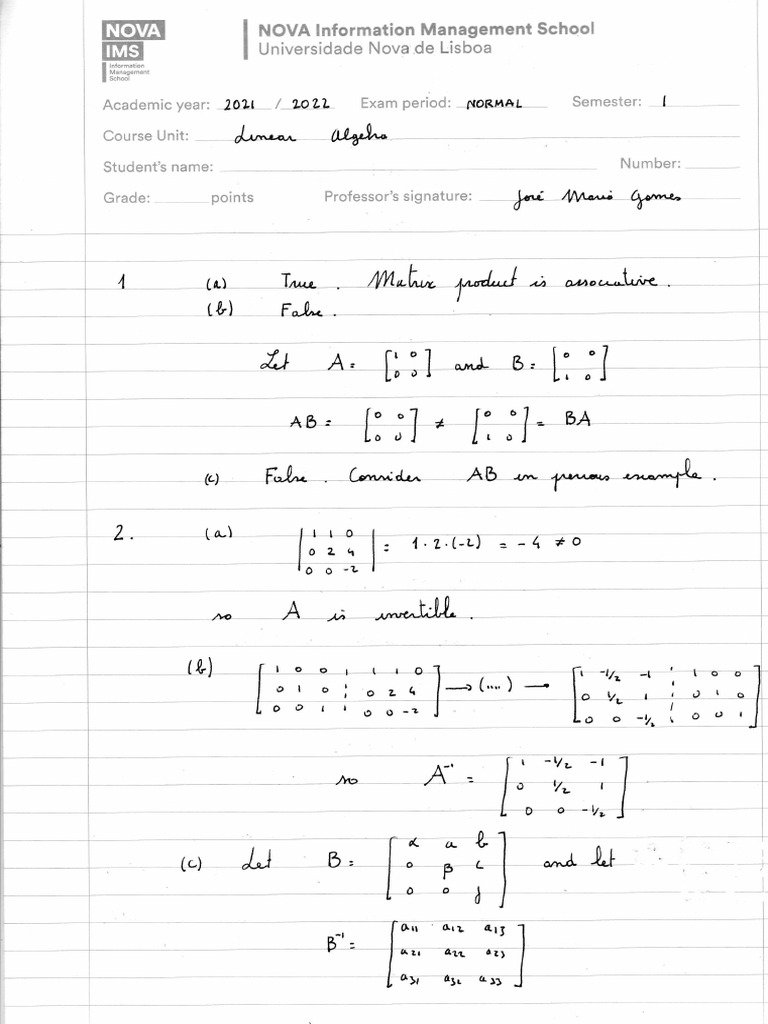 NOVA
IMS
Information
Management
School
NOVA Information Management School
Universidade Nova de Lisboa
Academic year: 2021 / 2022 Exam period: NORMAL Semester: 1
Course Unit: Linear Algebra
Student's name: Number:
Grade: points Professor's signature: José Maria Gomes
1 (a) True. Matrix product is associative.
(b) False.
Let A = [1 0; 0 0] and B = [0 0; 1 0]
AB = [0 0; 0 0] ≠ [0 0; 1 0] = BA
(c) False. Consider AB in previous example.
2. (a) |1 1 0; 0 2 4; 0 0 -2| = 1·2·(-2) = -4 ≠ 0
so A is invertible.
(b) [1 0 0 ¦ 1 1 0; 0 1 0 ¦ 0 2 4; 0 0 1 ¦ 0 0 -2] → (....) → [1 -1/2 -1 ¦ 1 0 0; 0 1/2 1 ¦ 0 1 0; 0 0 -1/2 ¦ 0 0 1]
so A⁻¹ = [1 -1/2 -1; 0 1/2 1; 0 0 -1/2]
(c) Let B = [α a b; 0 β c; 0 0 γ] and let
B⁻¹ = [a11 a12 a13; a21 a22 a23; a31 a32 a33]